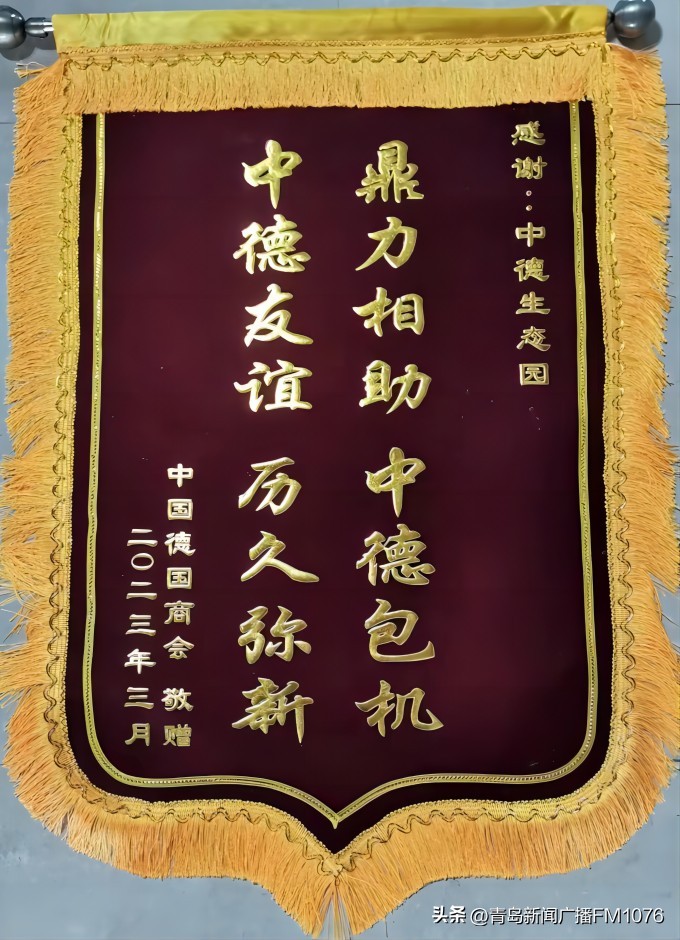 感谢：中德生态园
鼎力相助 中德包机
中德友谊 历久弥新
中国德国商会 敬赠
二〇二三年三月
头条 @青岛新闻广播FM1076